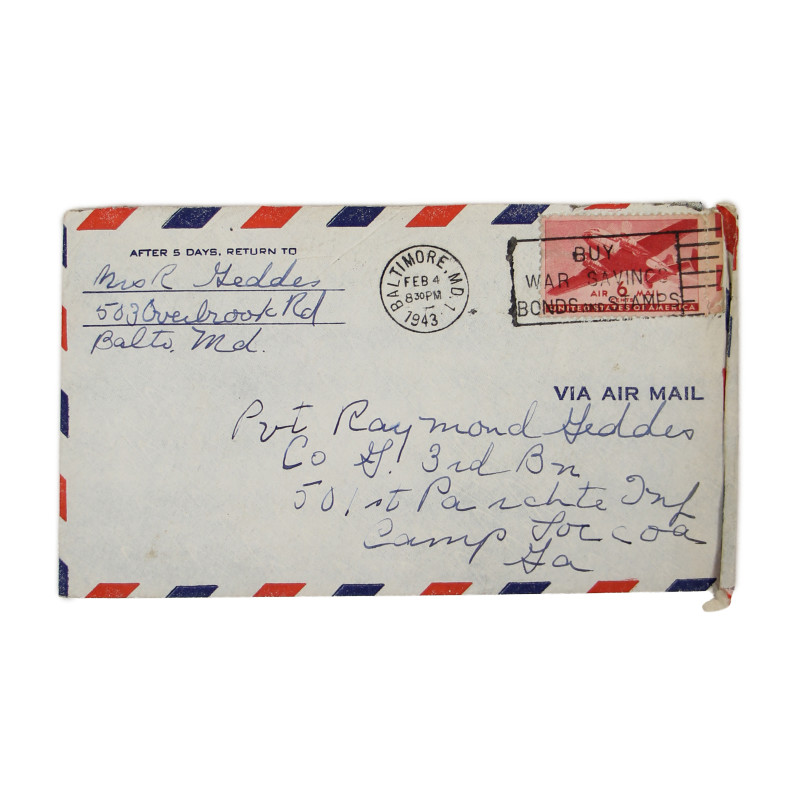 AFTER 5 DAYS, RETURN TO
Mrs R Geddes
503 Overbrook Rd
Balto. Md.
BALTIMORE, MD. 1
FEB 4
8 30 PM
1943
BUY
WAR SAVINGS
BONDS STAMPS
AIR 6¢ MAIL
UNITED STATES OF AMERICA
VIA AIR MAIL
Pvt Raymond Geddes
Co G. 3rd Bn
501st Parchte Inf
Camp Toccoa
Ga